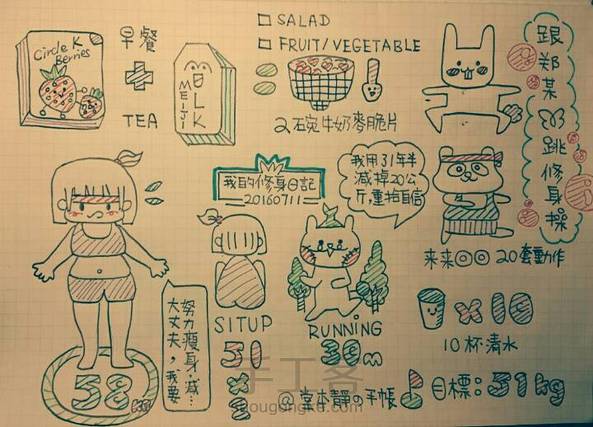 Circle K
Berries
早餐
TEA
MEIJI
MILK
SALAD
FRUIT/VEGETABLE
2碗牛奶麥脆片
跟郑某
跳修身操
我的修身日記
20160711
我用了1年半
減掉20公
斤,重拾自信
来来◎◎ 20套動作
大丈夫,我要
努力瘦身.減…
58KG
SITUP
50
x
2
RUNNING
30m
x 10
10杯清水
@堂本靜の手帳
目標:51kg
手工客